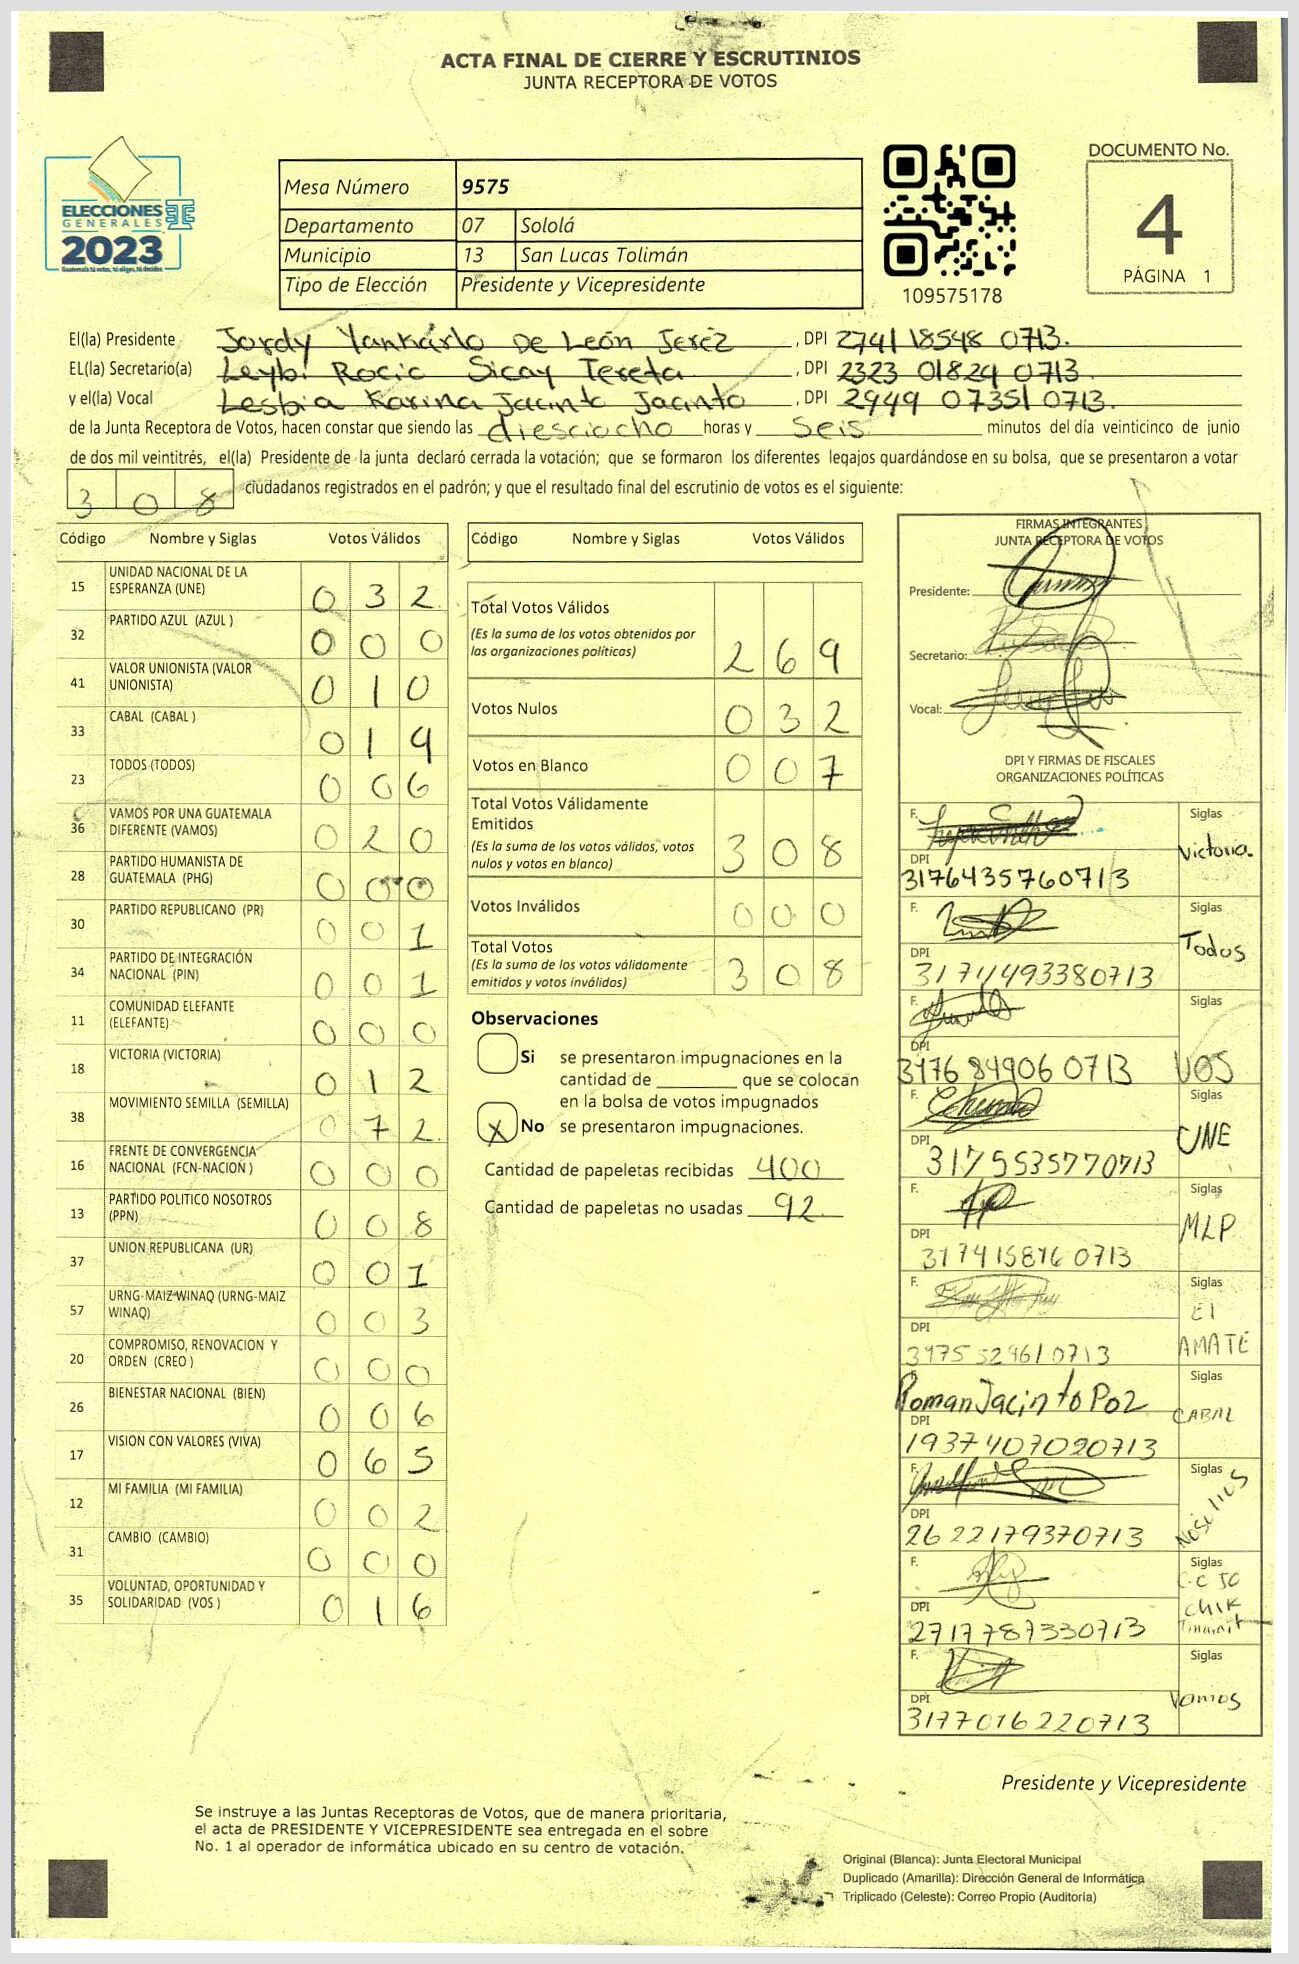 ACTA FINAL DE CIERRE Y ESCRUTINIOS
JUNTA RECEPTORA DE VOTOS
ELECCIONES
GENERALES
2023
Guatemala tú votas, tú eliges, tú decides
Mesa Número 9575
Departamento 07 Sololá
Municipio 13 San Lucas Tolimán
Tipo de Elección Presidente y Vicepresidente
109575178
DOCUMENTO No.
4
PÁGINA 1
El(la) Presidente Jordy Yankarlo De León Jeréz , DPI 2741 18548 0713.
EL(la) Secretario(a) Leybi Rocio Sicay Tereta , DPI 2323 01824 0713.
y el(la) Vocal Lesbia Karina Jacinto Jacinto , DPI 2949 07351 0713.
de la Junta Receptora de Votos, hacen constar que siendo las diesciocho horas y Seis minutos del día veinticinco de junio
de dos mil veintitrés, el(la) Presidente de la junta declaró cerrada la votación; que se formaron los diferentes legajos guardándose en su bolsa, que se presentaron a votar
3 0 8 ciudadanos registrados en el padrón; y que el resultado final del escrutinio de votos es el siguiente:
Código Nombre y Siglas Votos Válidos
15 UNIDAD NACIONAL DE LA ESPERANZA (UNE) 0 3 2
32 PARTIDO AZUL (AZUL ) 0 0 0
41 VALOR UNIONISTA (VALOR UNIONISTA) 0 1 0
33 CABAL (CABAL ) 0 1 9
23 TODOS (TODOS) 0 0 6
36 VAMOS POR UNA GUATEMALA DIFERENTE (VAMOS) 0 2 0
28 PARTIDO HUMANISTA DE GUATEMALA (PHG) 0 0 0
30 PARTIDO REPUBLICANO (PR) 0 0 1
34 PARTIDO DE INTEGRACIÓN NACIONAL (PIN) 0 0 1
11 COMUNIDAD ELEFANTE (ELEFANTE) 0 0 0
18 VICTORIA (VICTORIA) 0 1 2
38 MOVIMIENTO SEMILLA (SEMILLA) 0 7 2
16 FRENTE DE CONVERGENCIA NACIONAL (FCN-NACION ) 0 0 0
13 PARTIDO POLITICO NOSOTROS (PPN) 0 0 8
37 UNION REPUBLICANA (UR) 0 0 1
57 URNG-MAIZ-WINAQ (URNG-MAIZ WINAQ) 0 0 3
20 COMPROMISO, RENOVACION Y ORDEN (CREO ) 0 0 0
26 BIENESTAR NACIONAL (BIEN) 0 0 6
17 VISION CON VALORES (VIVA) 0 6 5
12 MI FAMILIA (MI FAMILIA) 0 0 2
31 CAMBIO (CAMBIO) 0 0 0
35 VOLUNTAD, OPORTUNIDAD Y SOLIDARIDAD (VOS ) 0 1 6
Código Nombre y Siglas Votos Válidos
Total Votos Válidos 2 6 9
(Es la suma de los votos obtenidos por
las organizaciones políticas)
Votos Nulos 0 3 2
Votos en Blanco 0 0 7
Total Votos Válidamente
Emitidos 3 0 8
(Es la suma de los votos válidos, votos
nulos y votos en blanco)
Votos Inválidos 0 0 0
Total Votos 3 0 8
(Es la suma de los votos válidamente
emitidos y votos inválidos)
Observaciones
Si se presentaron impugnaciones en la
cantidad de ________ que se colocan
en la bolsa de votos impugnados
X No se presentaron impugnaciones.
Cantidad de papeletas recibidas 400
Cantidad de papeletas no usadas 92.
FIRMAS INTEGRANTES
JUNTA RECEPTORA DE VOTOS
Presidente:
Secretario:
Vocal:
DPI Y FIRMAS DE FISCALES
ORGANIZACIONES POLÍTICAS
F. Siglas
Victoria.
DPI
3176435760713
F. Siglas
Todos
DPI
31711493380713
F. Siglas
DPI
3176 84906 0713 VOS
F. Siglas
UNE
DPI
3175535770713
F. Siglas
MLP
DPI
317415816 0713
F. Siglas
El
AMATE
DPI
3175 52961 0713
F. Siglas
Roman Jacinto Poz
CABAL
DPI
1937407020713
F. Siglas
DPI
2622179370713
F. Siglas
DPI
2717787330713
F. Siglas
Vamos
DPI
3177016220713
Presidente y Vicepresidente
Se instruye a las Juntas Receptoras de Votos, que de manera prioritaria,
el acta de PRESIDENTE Y VICEPRESIDENTE sea entregada en el sobre
No. 1 al operador de informática ubicado en su centro de votación.
Original (Blanca): Junta Electoral Municipal
Duplicado (Amarilla): Dirección General de Informática
Triplicado (Celeste): Correo Propio (Auditoría)